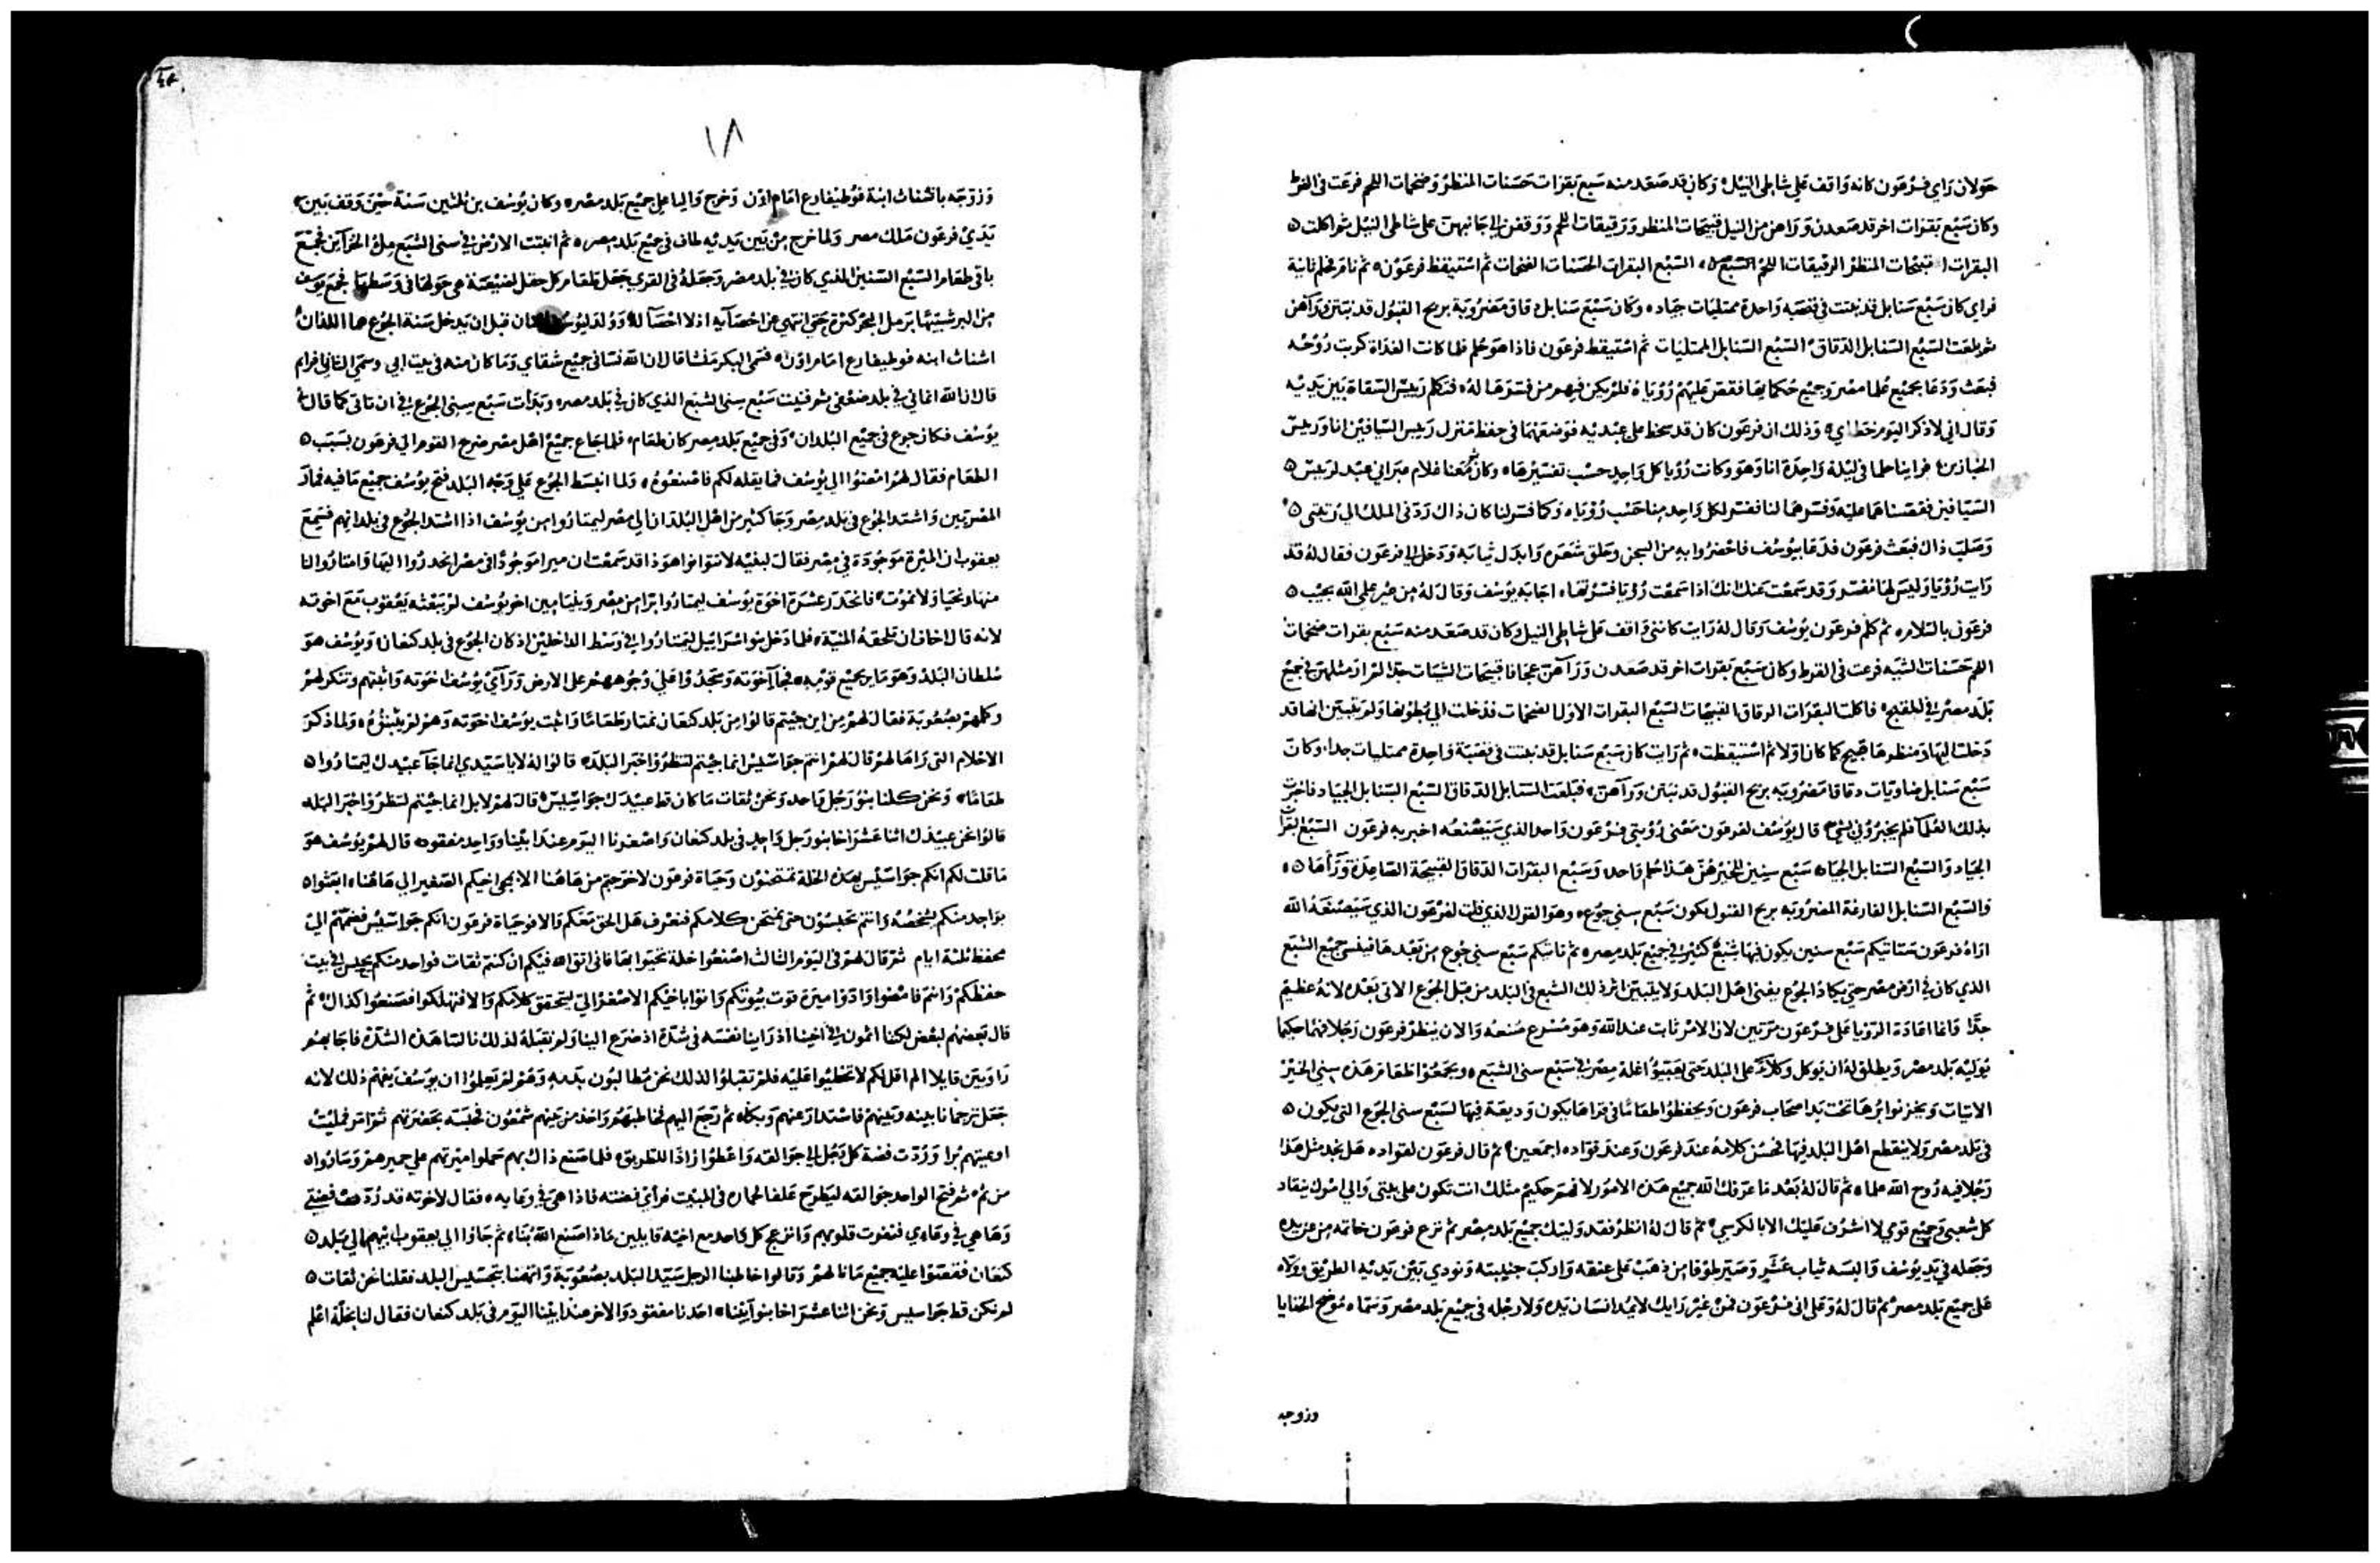 حولان راي فرعون كانه واقف علي شاطي النيل وكان قد صعد منه سبع بقرات حسنات المنظر وضخمات اللحم فرعت في القرط
وكان سبع بقرات اخر قد صعدن وراهن من النيل قبيحات المنظر ورقيقات اللحم ووقفن الي جانبهن علي شاطي النيل ثم اكلت
البقرات القبيحات المنظر الرقيقات اللحم السبع البقرات الحسنات الضخمات ثم استيقظ فرعون ثم نام فحلم ثانية
فراي كان سبع سنابل قد نبتت في قصبه واحدة ممتليات جياد وكان سبع سنابل دقاق مضروبة بريح القبول قد نبتن وراهن
ثم بلعت السبع السنابل الدقاق السبع السنابل الممتليات ثم استيقظ فرعون فاذا هو حلم فلما كانت الغداة كربت روحه
فبعث ودعا بجميع علما مصر وجميع حكمايها فقص عليهم روياه فلم يكن فيهم من فسرها له فتكلم رييس السقاة بين يديه
وقال اني لاذكر اليوم خطاي وذلك ان فرعون كان قد سخط علي عبديه فوضعهما في حفظ منزل رييس السيافين انا ورييس
الخبازين فراينا حلما في ليلة واحدة انا وهو وكانت رويا كل واحد حسب تفسيرها وكان ثم معنا غلام عبراني عبد لرييس
السيافين فقصصناهما عليه وفسرهما لنا ففسر لكل واحد منا حسب روياه وكما فسر لنا كان ذاك ردني الملك الي رتبتي
وصلب ذاك فبعث فرعون فدعا بيوسف فاحضروا به من السجن وحلق شعره وابدل ثيابه ودخل الي فرعون فقال له قد
رايت رويا وليس لها مفسر وقد سمعت عنك انك اذا سمعت رويا فسرتها اجابه يوسف وقال له من غير علمي الله يجيب
فرعون بالسلام ثم كلم فرعون يوسف وقال له رايت كانني واقف علي شاطي النيل وكان قد صعد منه سبع بقرات ضخمات
اللحم حسنات الشيه فرعت في القرط وكان سبع بقرات اخر قد صعدن وراهن عجافا قبيحات الشيات جدا لم ار مثلهن في جميع
بلد مصر في القبح فاكلت البقرات الرقاق القبيحات السبع البقرات الاولا الضخمات فدخلت الي بطونها ولم يتبين انها قد
دخلت اليها ومنظرها قبيح كما كان اولا ثم استيقظت ثم رايت كان سبع سنابل قد نبتت في قصبة واحدة ممتليات جدا وكان
سبع سنابل ضاويات دقاقا مضروبه بريح القبول قد نبتن وراهن فبلعت السنابل الدقاق السبع السنابل الجياد فاخبرت
بذلك العلما فلم يخبروني بشي قال يوسف لفرعون معنى رويتي فرعون واحد الذي سيصنعه اخبر به فرعون السبع البقرات
الجياد والسبع السنابل الجياد سبع سنين للخير هن هذا حلم واحد وسبع البقرات الدقاق القبيحة الصاعدة وراها
والسبع السنابل الفارغة المضروبه بريح القبول يكون سبع سني جوع وهو القول الذي قلت لفرعون الذي سيصنعه الله
اراه فرعون ستاتيكم سبع سنين يكون فيها شبع كثير في جميع بلد مصر ثم تاتيكم سبع سني جوع من بعدها فينسي جميع الشبع
الذي كان في ارض مصر حتي يكاد الجوع يفني اهل البلد ولا يتبين اثر ذلك الشبع في البلد من قبل الجوع الاتي بعده لانه عظيم
جدا واما اعادة الرويا علي فرعون مرتين لان الامر ثابت عند الله وهو مسرع صنعه والان ينظر فرعون رجلا فهما حكيما
يوليه بلد مصر ويطلق له ان يوكل وكلاء على البلد حتي يعبيوا غلة مصر في سبع سني الشبع ويجمعوا طعام هذه سني الخير
الاتيات ويخزنوا برها تحت يد اصحاب فرعون ويحفظوا طعاما في قراها يكون وديعة فيها لسبع سني الجوع التي يكون
في بلد مصر ولا ينقطع اهل البلد فيها فحسن كلامه عند فرعون وعند قواده اجمعين ثم قال فرعون لقواده هل نجد مثل هذا
رجلا فيه روح الله علما ثم قال له بعد ما عرفك الله جميع هذه الامور لا فهم حكيم مثلك انت تكون علي بيتي والي امرك ينقاد
كل شعبي وجميع قومي لا اشرف عليك الا بالكرسي ثم قال له انظر فقد وليتك جميع بلد مصر ثم نزع فرعون خاتمه من يده
وجعله في يد يوسف والبسه ثياب عشر وصير طوقا من ذهب علي عنقه واركب جنيبته ونودي بين يديه الطريق وولاه
علي جميع بلد مصر ثم قال له وعلي اني فرعون فمن غير رايك لا يمد انسان يده ولا رجله في جميع بلد مصر وسماه موضح الخفايا
وزوجه
١٨
وزوجه باشنات ابنة فوطيفارع امام اون وخرج واليا علي جميع بلد مصر وكان يوسف بن ثلثين سنة حين وقف بين
يدي فرعون ملك مصر ولما خرج من بين يديه طاف في جميع بلد مصر ثم انبتت الارض في سني الشبع ملء الخزاين فجمع
باقي طعام السبع السنين الذي كان في بلد مصر وجعله في القري جعل طعام كل حقل لضيعته هي حولها في وسطها فجمع يوسف
من البر شبيها برمل البحر كثرة حتي انتهي عن احصايه اذ لا احصا له وولد ليوسف ابنان قبل ان يدخل سنة الجوع هما اللذان
اشنات ابنه فوطيفارع امام اون فسمي البكر منشا قال ان الله نساني جميع شقاي وما كان منه في بيت ابي وسمي الثاني افرام
قال ان الله انماني في بلد ضعفي ثم فنيت سبع سني الشبع الذي كان في بلد مصر وبدات سبع سني الجوع في ان تاتي كما قال
يوسف فكان جوع في جميع البلدان وفي جميع بلد مصر كان طعام فلما جاع جميع اهل مصر ضرخ القوم الي فرعون بسبب
الطعام فقال لهم امضوا الي يوسف فما يقله لكم فاصنعوه ولما انبسط الجوع علي وجه البلد فتح يوسف جميع ما فيه فمار
المصريين واشتد الجوع في بلد مصر وجا كثير من اهل البلدان الي مصر ليمتاروا من يوسف اذا اشتد الجوع في بلدانهم فسمع
يعقوب ان الميرة موجودة في مصر فقال لبنيه لا تتوانوا هوذا قد سمعت ان ميرا موجودا في مصر انحدروا اليها وامتاروا لنا
منها ونحيا ولا نموت فانحدر عشرة اخوة يوسف ليمتاروا برا من مصر وبنيامين اخو يوسف لم يبعثه يعقوب مع اخوته
لانه قال اخاف ان تلحقه المنية فلما دخل بنو اسراييل ليمتاروا في وسط الداخلين اذ كان الجوع في بلد كنعان ويوسف هو
سلطان البلد وهو ماير جميع قومه فجا اخوته وسجدوا علي وجوههم على الارض وراى يوسف اخوته واثبتهم وتنكر لهم
وكلمهم بصعوبة فقال لهم من اين جيتم قالوا من بلد كنعان نمتار طعاما واثبت يوسف اخوته وهم لم يثبتوه ولما ذكر
الاحلام التي راها لهم قال لهم انتم جواسيس انما جيتم لتنظروا اخبر البلد قالوا له لا يا سيدي انما جا عبيدك ليمتاروا
طعاما ونحن كلنا بنو رجل واحد ونحن ثقات ما كان قط عبيدك جواسيس قال لهم لا بل انما جيتم لتنظروا خبر البلد
قالوا نحن عبيدك اثنا عشر اخا بنو رجل واحد في بلد كنعان واصغرنا اليوم عند ابينا وواحد مفقود قال لهم يوسف هو
ما قلت لكم انكم جواسيس بهذه الخلة تمتحنون وحياة فرعون لا خرجتم من هاهنا الا بمجي اخيكم الصغير الي هاهنا ابعثوا
بواحد منكم يحضره وانتم تحبسون حتى نمتحن كلامكم فنعرف هل الحق معكم والا فوحياة فرعون انكم جواسيس فضمهم الي
محفظ ثلثة ايام ثم قال لهم في اليوم الثالث اصنعوا خلة تحيوا بها فاني اتق الله فيكم ان كنتم ثقات فواحد منكم يحبس في بيت
حفظكم وانتم فامضوا وادوا ميرة قوت بيوتكم واتوا باخيكم الاصغر الي ليتحقق كلامكم والا فتهلكوا فصنعوا كذاك ثم
قال بعضهم لبعض لكنا اثمون في اخينا اذ راينا نفسه في شدة اذ ضرع الينا ولم نقبله لذلك نالتنا هذه الشدة فاجابهم
راوبين قايلا الم اقل لكم لا تخطيوا عليه فلم تقبلوا لذلك نحن مطالبون بدمه وهم لم يعلموا ان يوسف يفهم ذلك لانه
جعل ترجمانا بينه وبينهم فاستدار عنهم وبكا ثم رجع اليهم فخاطبهم واخذ من بينهم شمعون فحبسه بحضرتهم ثم امر فمليت
اوعيتهم برا وردت فضة كل رجل الي جوالقه واعطوا زاذا للطريق فلما صنع ذاك بهم حملوا ميرتهم علي حميرهم وساروا
من ثم ثم فتح الواحد جوالقه ليطرح علفا لحماره في المبيت فراى فضته فاذا هي في وعايه فقال لاخوته قد ردت فضتي
وها هي في وعاءي فنفرت قلوبهم وانزعج كل واحد مع اخيه قايلين ماذا صنع الله بنا ثم جاوا الي يعقوب ابيهم الي بلد
كنعان فقصوا عليه جميع ما نالهم وقالوا خاطبنا الرجل سيد البلد بصعوبة واتهمنا بتجسيس البلد فقلنا نحن ثقات
لم نكن قط جواسيس ونحن اثنا عشر اخا بنو ابينا احدنا مفقود والاخر عند ابينا اليوم في بلد كنعان فقال لنا بخلة اعلم